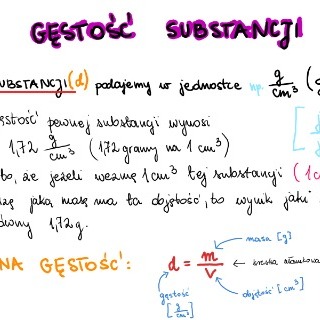 GĘSTOŚĆ SUBSTANCJI
SUBSTANCJI (d) podajemy w jednostce np. g/cm³ (g
gęstość pewnej substancji wynosi
1,72 g/cm³ (1,72 gramy na 1 cm³)
to, że jeżeli wezmę 1 cm³ tej substancji (1 c
jaką masę ma ta objętość, to wynik jaki
równy 1,72 g.
NA GĘSTOŚĆ:
masa [g]
d = m/V ← kreska
gęstość [g/cm³]
objętość [cm³]